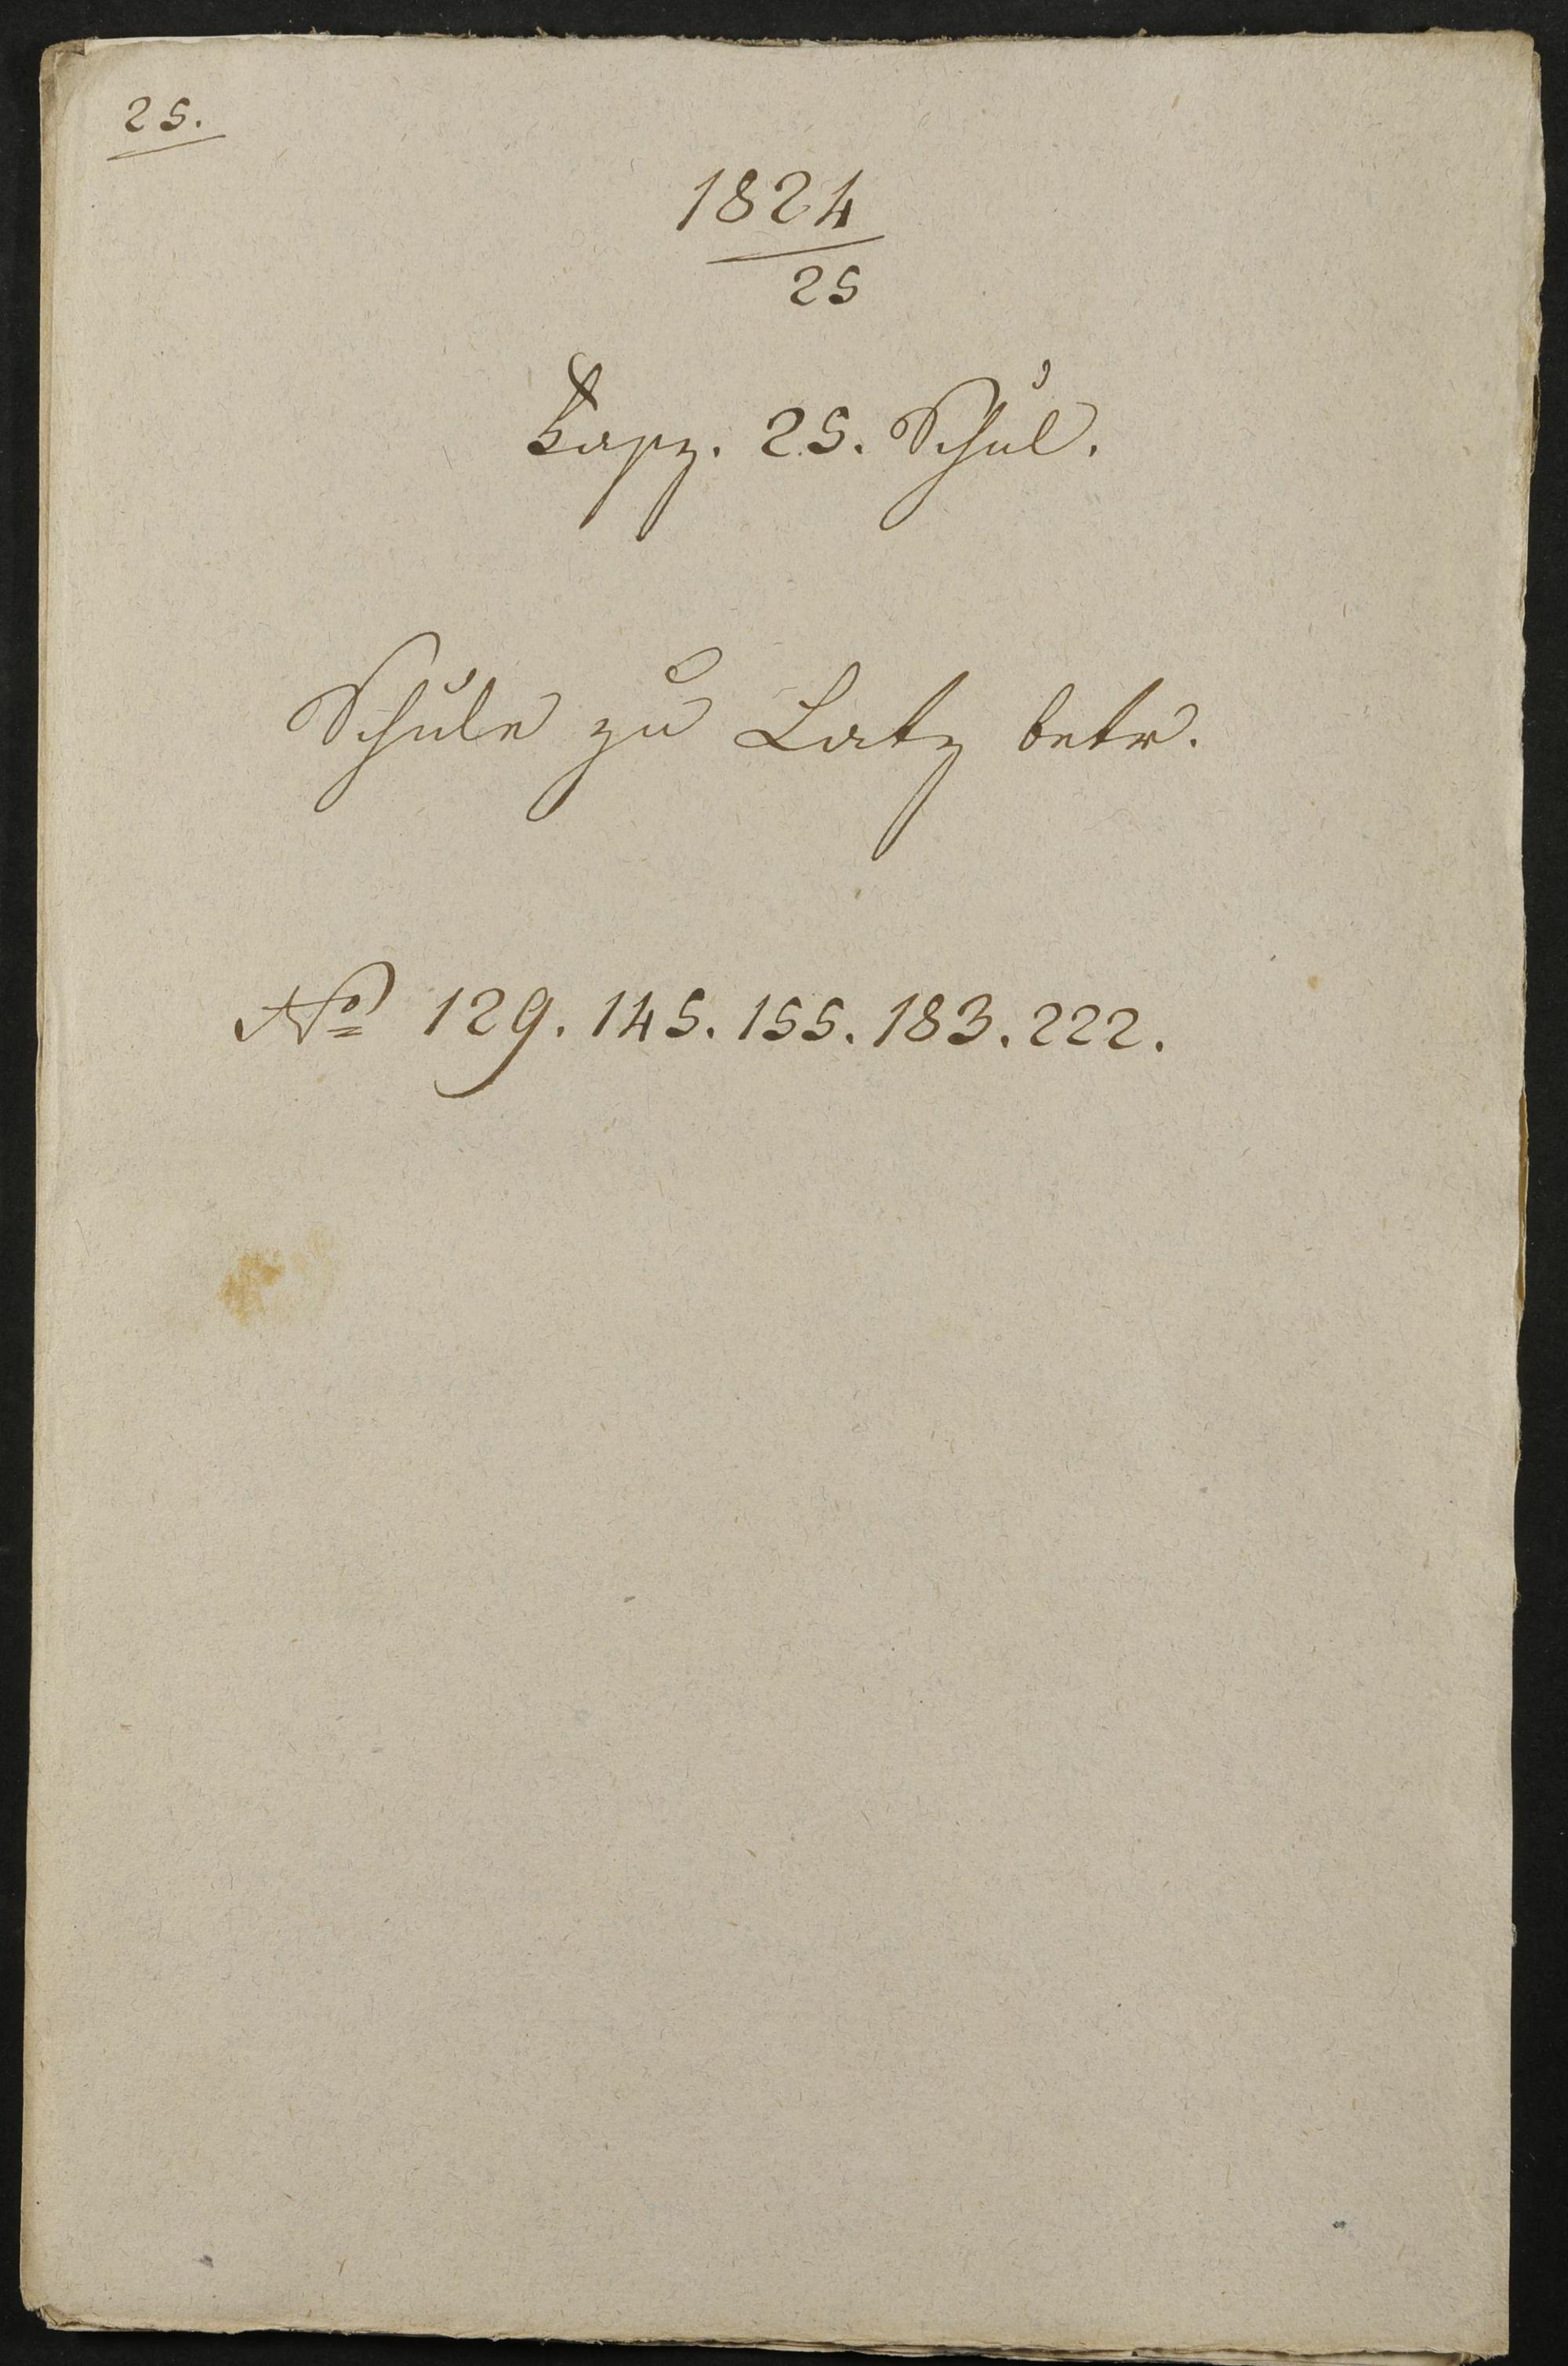 25.
1824
25
Fasz. 25. Schul.
Schule zu Latz betr.
No 129. 145. 155. 183. 222.